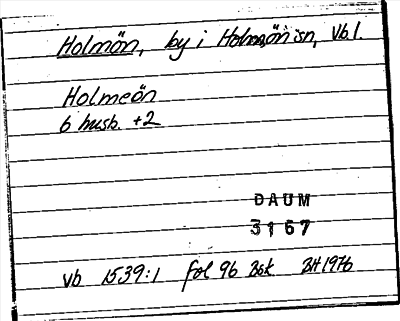 Holmön, by i Holmöns sn, Vb l.
Holmeön
6 husb. +2
DAUM
3167
Vb 1539:1 fol 96 Bsk BH 1976